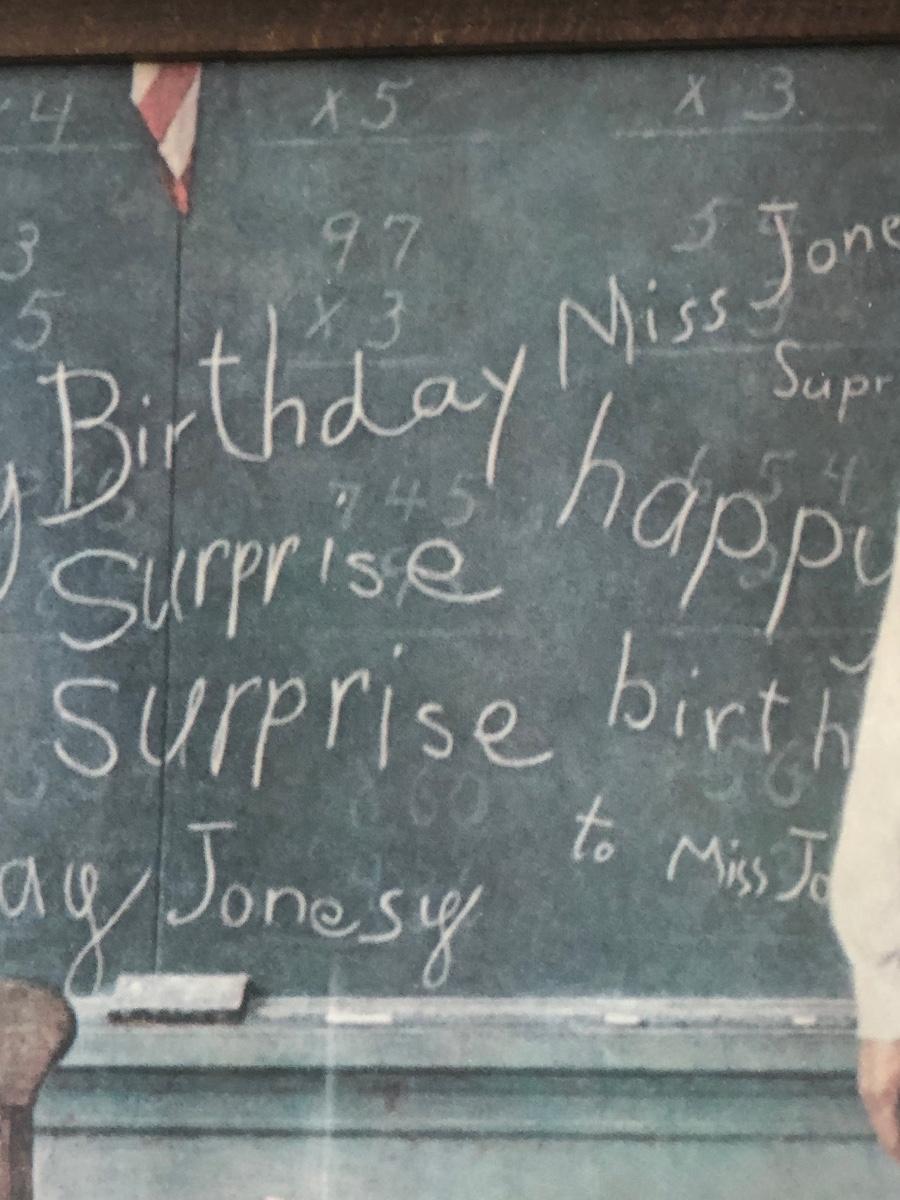 4
x 5
x 3
3
97
5
Jone
5
x 3
Miss
Birthday
Supr
y
happy
745
54
Surprise
Surprise
birth
60
to Miss Jo
ay Jonesy